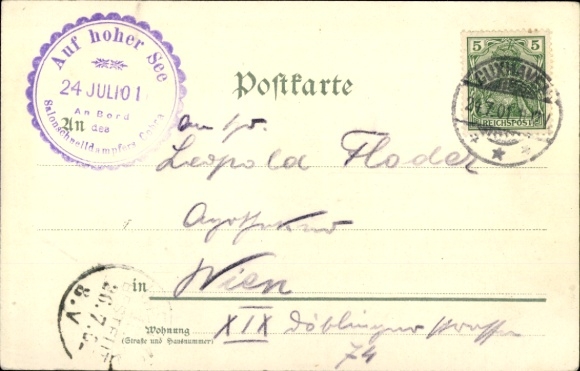 Auf hoher See
24 JULI 01
An Bord
des
Salonschnelldampfers Cobra
5
REICHSPOST
CUXHAVEN
24.7.01
Postkarte
An
Leopold Floder
Apotheker
in Wien
Wohnung
(Straße und Hausnummer)
XIX Döblinger Straße
74